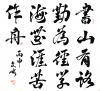 書山有路
勤為徑學
海無涯苦
作舟
丙申